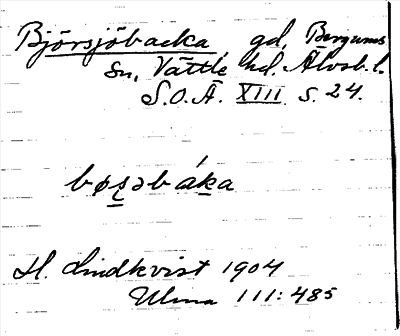 Björsjöbacka, gd, Bergums
sn, Vättle hd. Älvsb. l.
S.O.Ä. XIII s. 24.
bøʂəbáka
H. Lindkvist 1904
Ulma 111:485